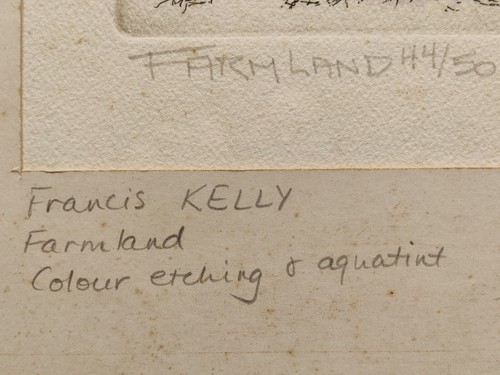 FARMLAND 44/50
Francis KELLY
Farmland
Colour etching & aquatint